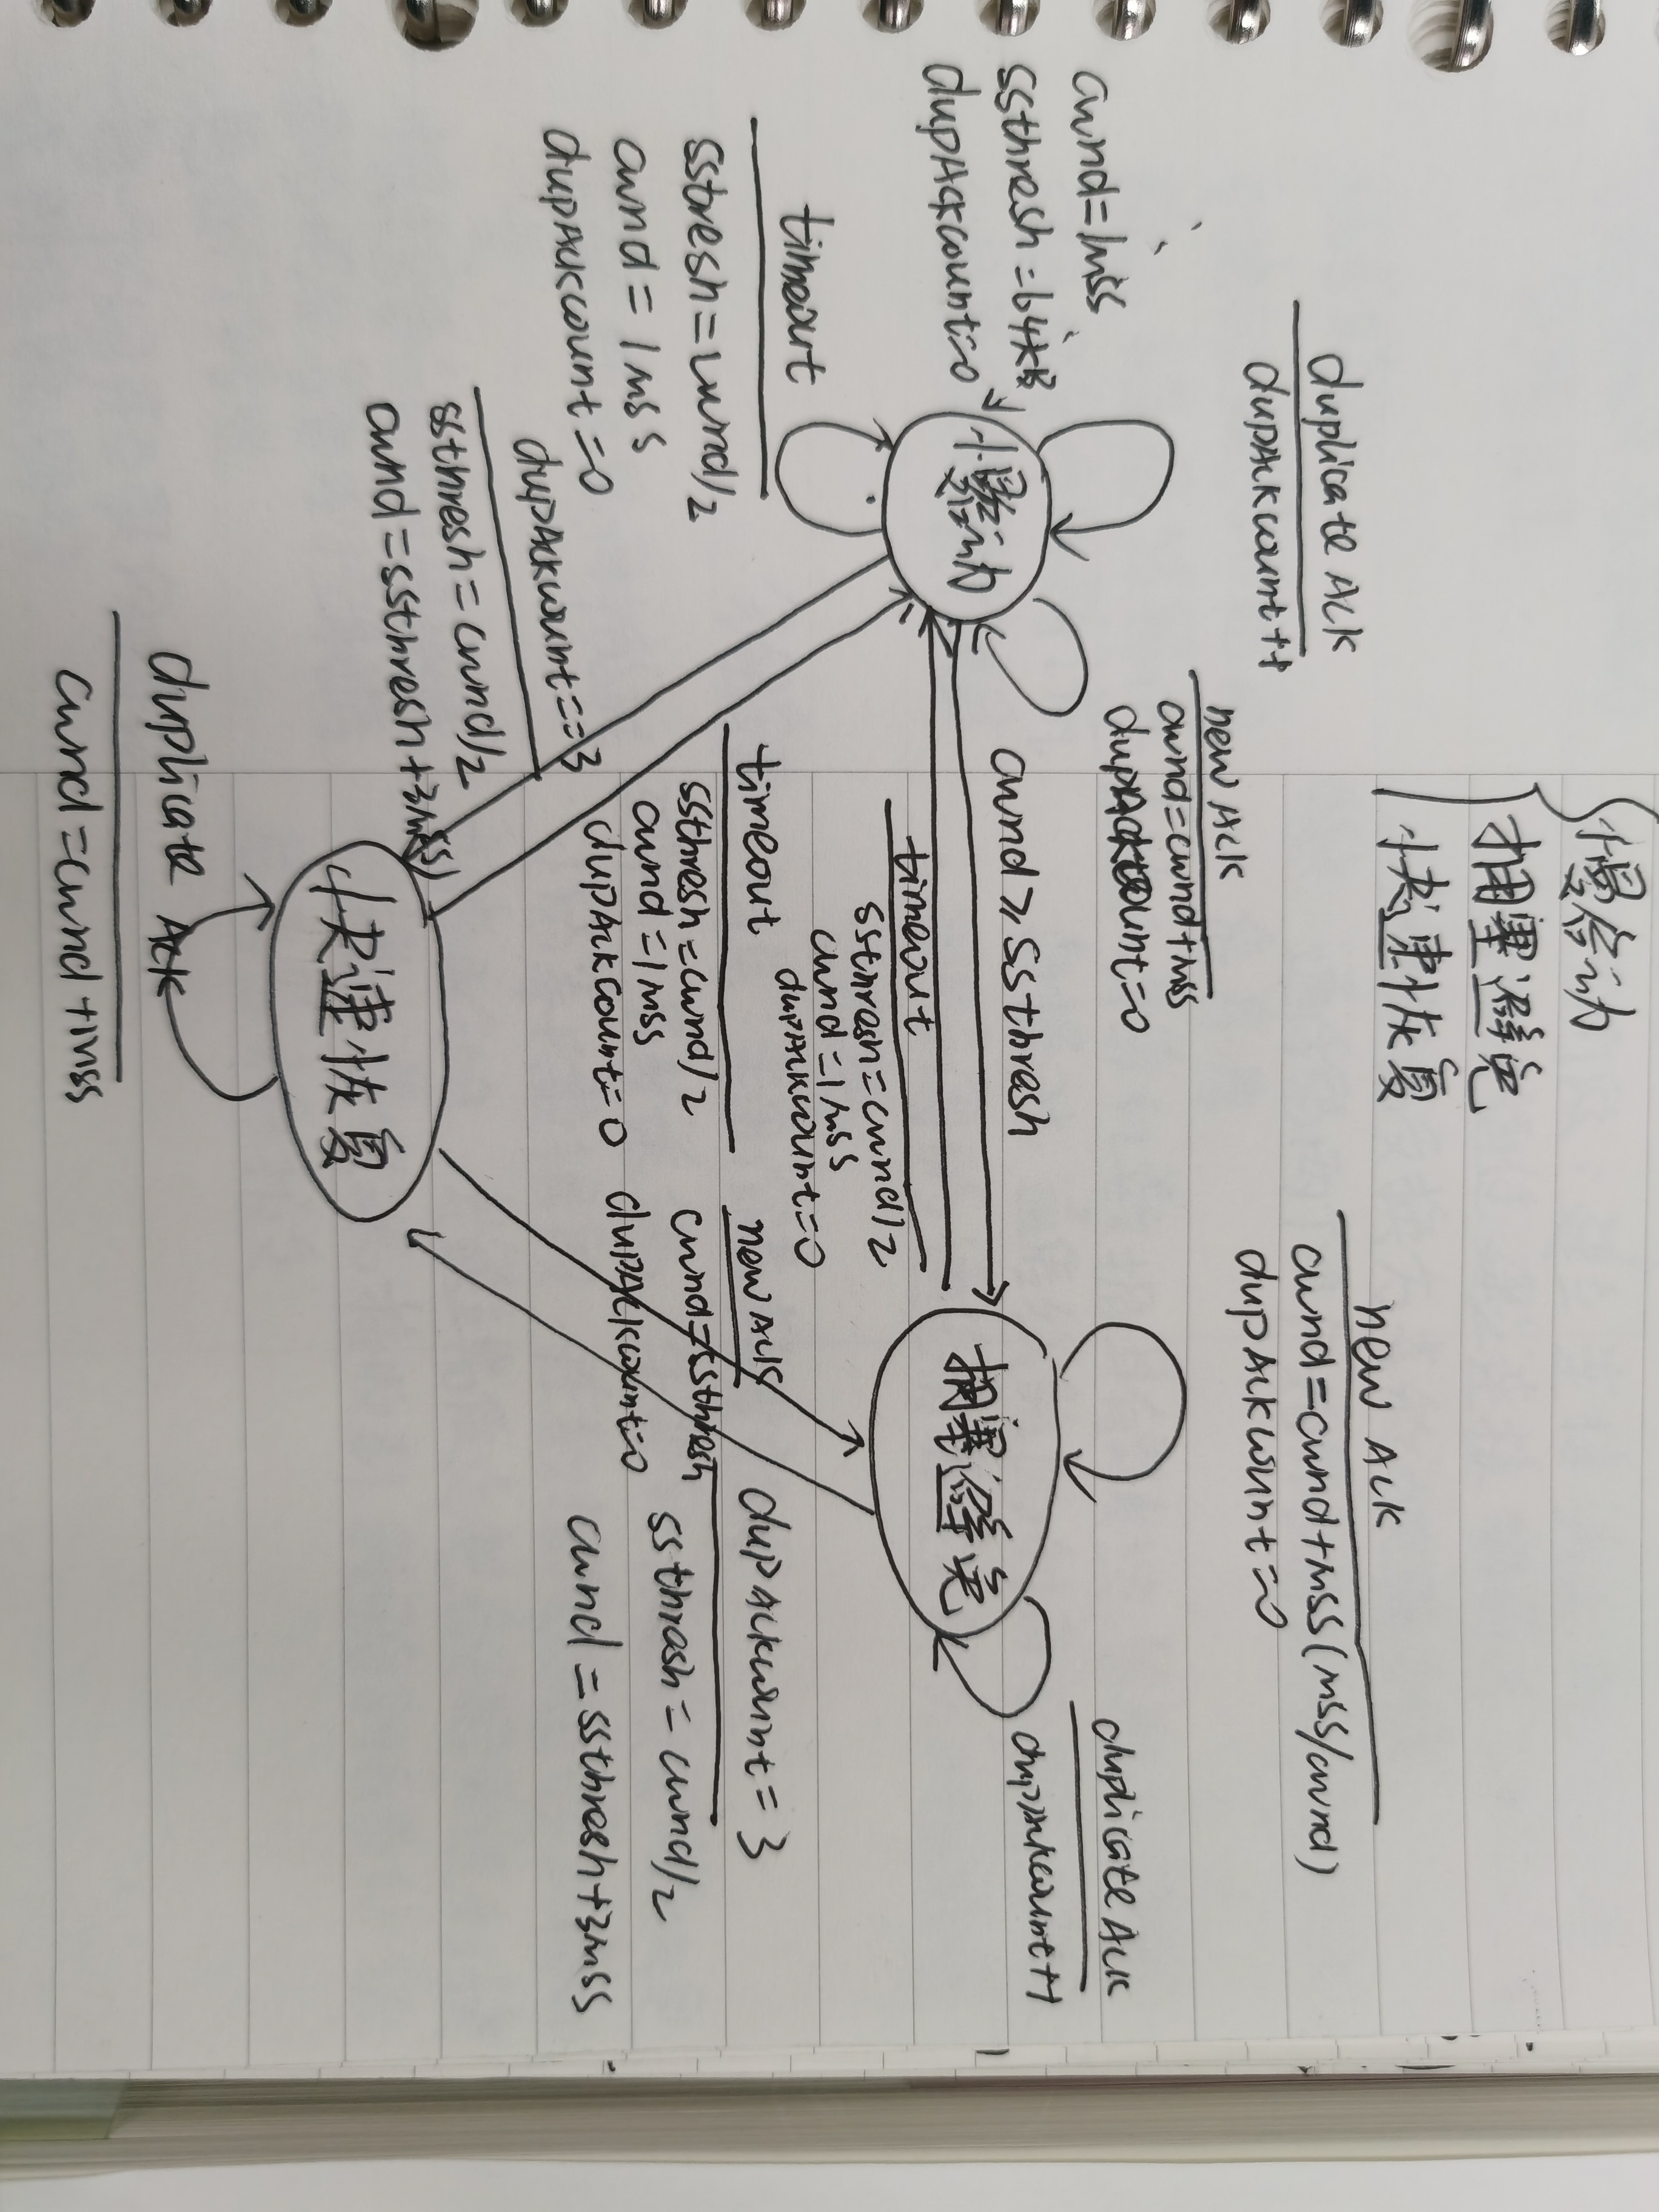 慢启动
拥塞避免
快速恢复
duplicate ACK
dupACKcount++
new ACK
cwnd=cwnd+MSS
dupACKcount=0
new ACK
cwnd=cwnd+MSS(MSS/cwnd)
dupACKcount=0
duplicate ACK
dupACKcount++
cwnd=1MSS
ssthresh=64KB
dupACKcount=0
慢启动
cwnd≥ssthresh
拥塞避免
timeout
ssthresh=cwnd/2
cwnd=1MSS
dupACKcount=0
timeout
sstresh=cwnd/2
cwnd=1MSS
dupACKcount=0
timeout
ssthresh=cwnd/2
cwnd=1MSS
dupACKcount=0
new ACK
cwnd=ssthresh
dupACKcount=0
dupACKcount=3
ssthresh=cwnd/2
cwnd=ssthresh+3MSS
dupACKcount==3
ssthresh=cwnd/2
cwnd=ssthresh+3MSS
快速恢复
duplicate ACK
cwnd=cwnd+MSS